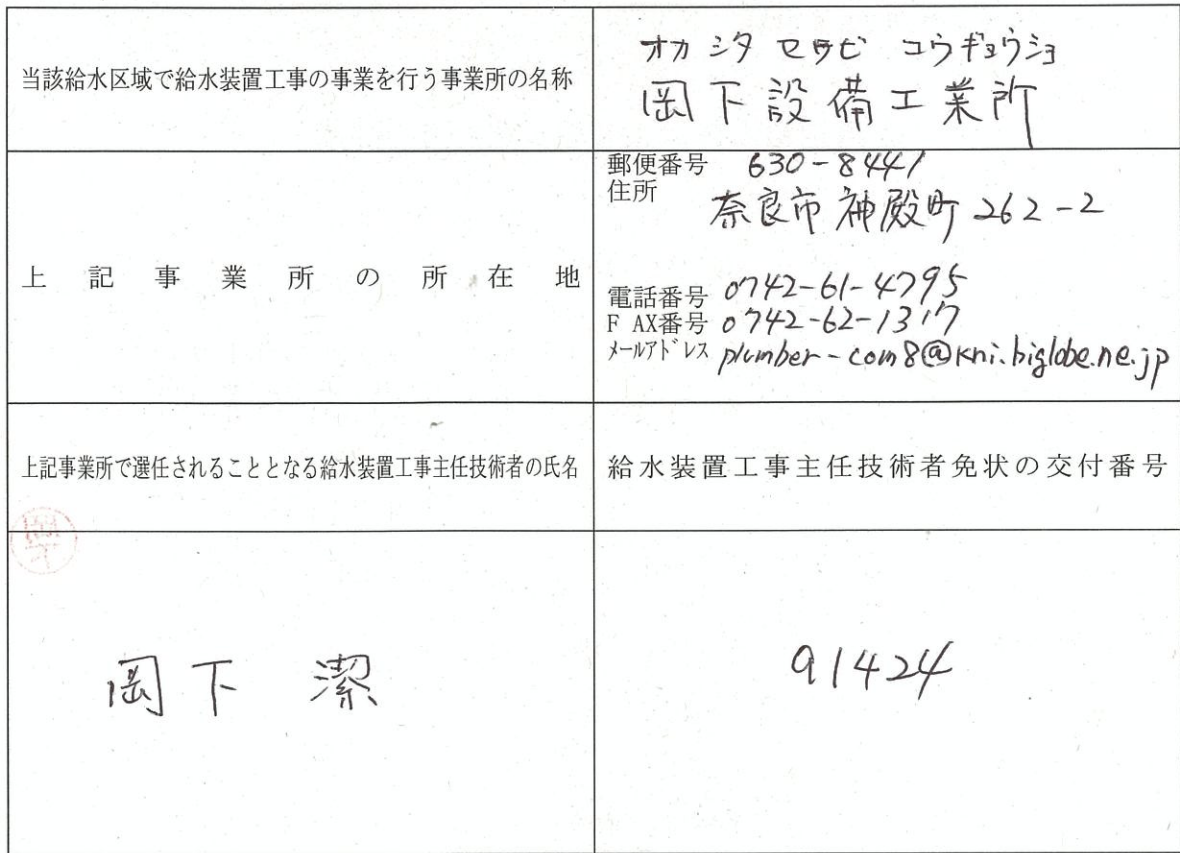 当該給水区域で給水装置工事の事業を行う事業所の名称
オカシタ セツビ コウギョウショ
岡下設備工業所
上記事業所の所在地
郵便番号 630-8441
住所
奈良市神殿町262-2
電話番号 0742-61-4795
F AX番号 0742-62-1317
メールアドレス plumber-com8@kni.biglobe.ne.jp
上記事業所で選任されることとなる給水装置工事主任技術者の氏名
給水装置工事主任技術者免状の交付番号
岡下 潔
91424